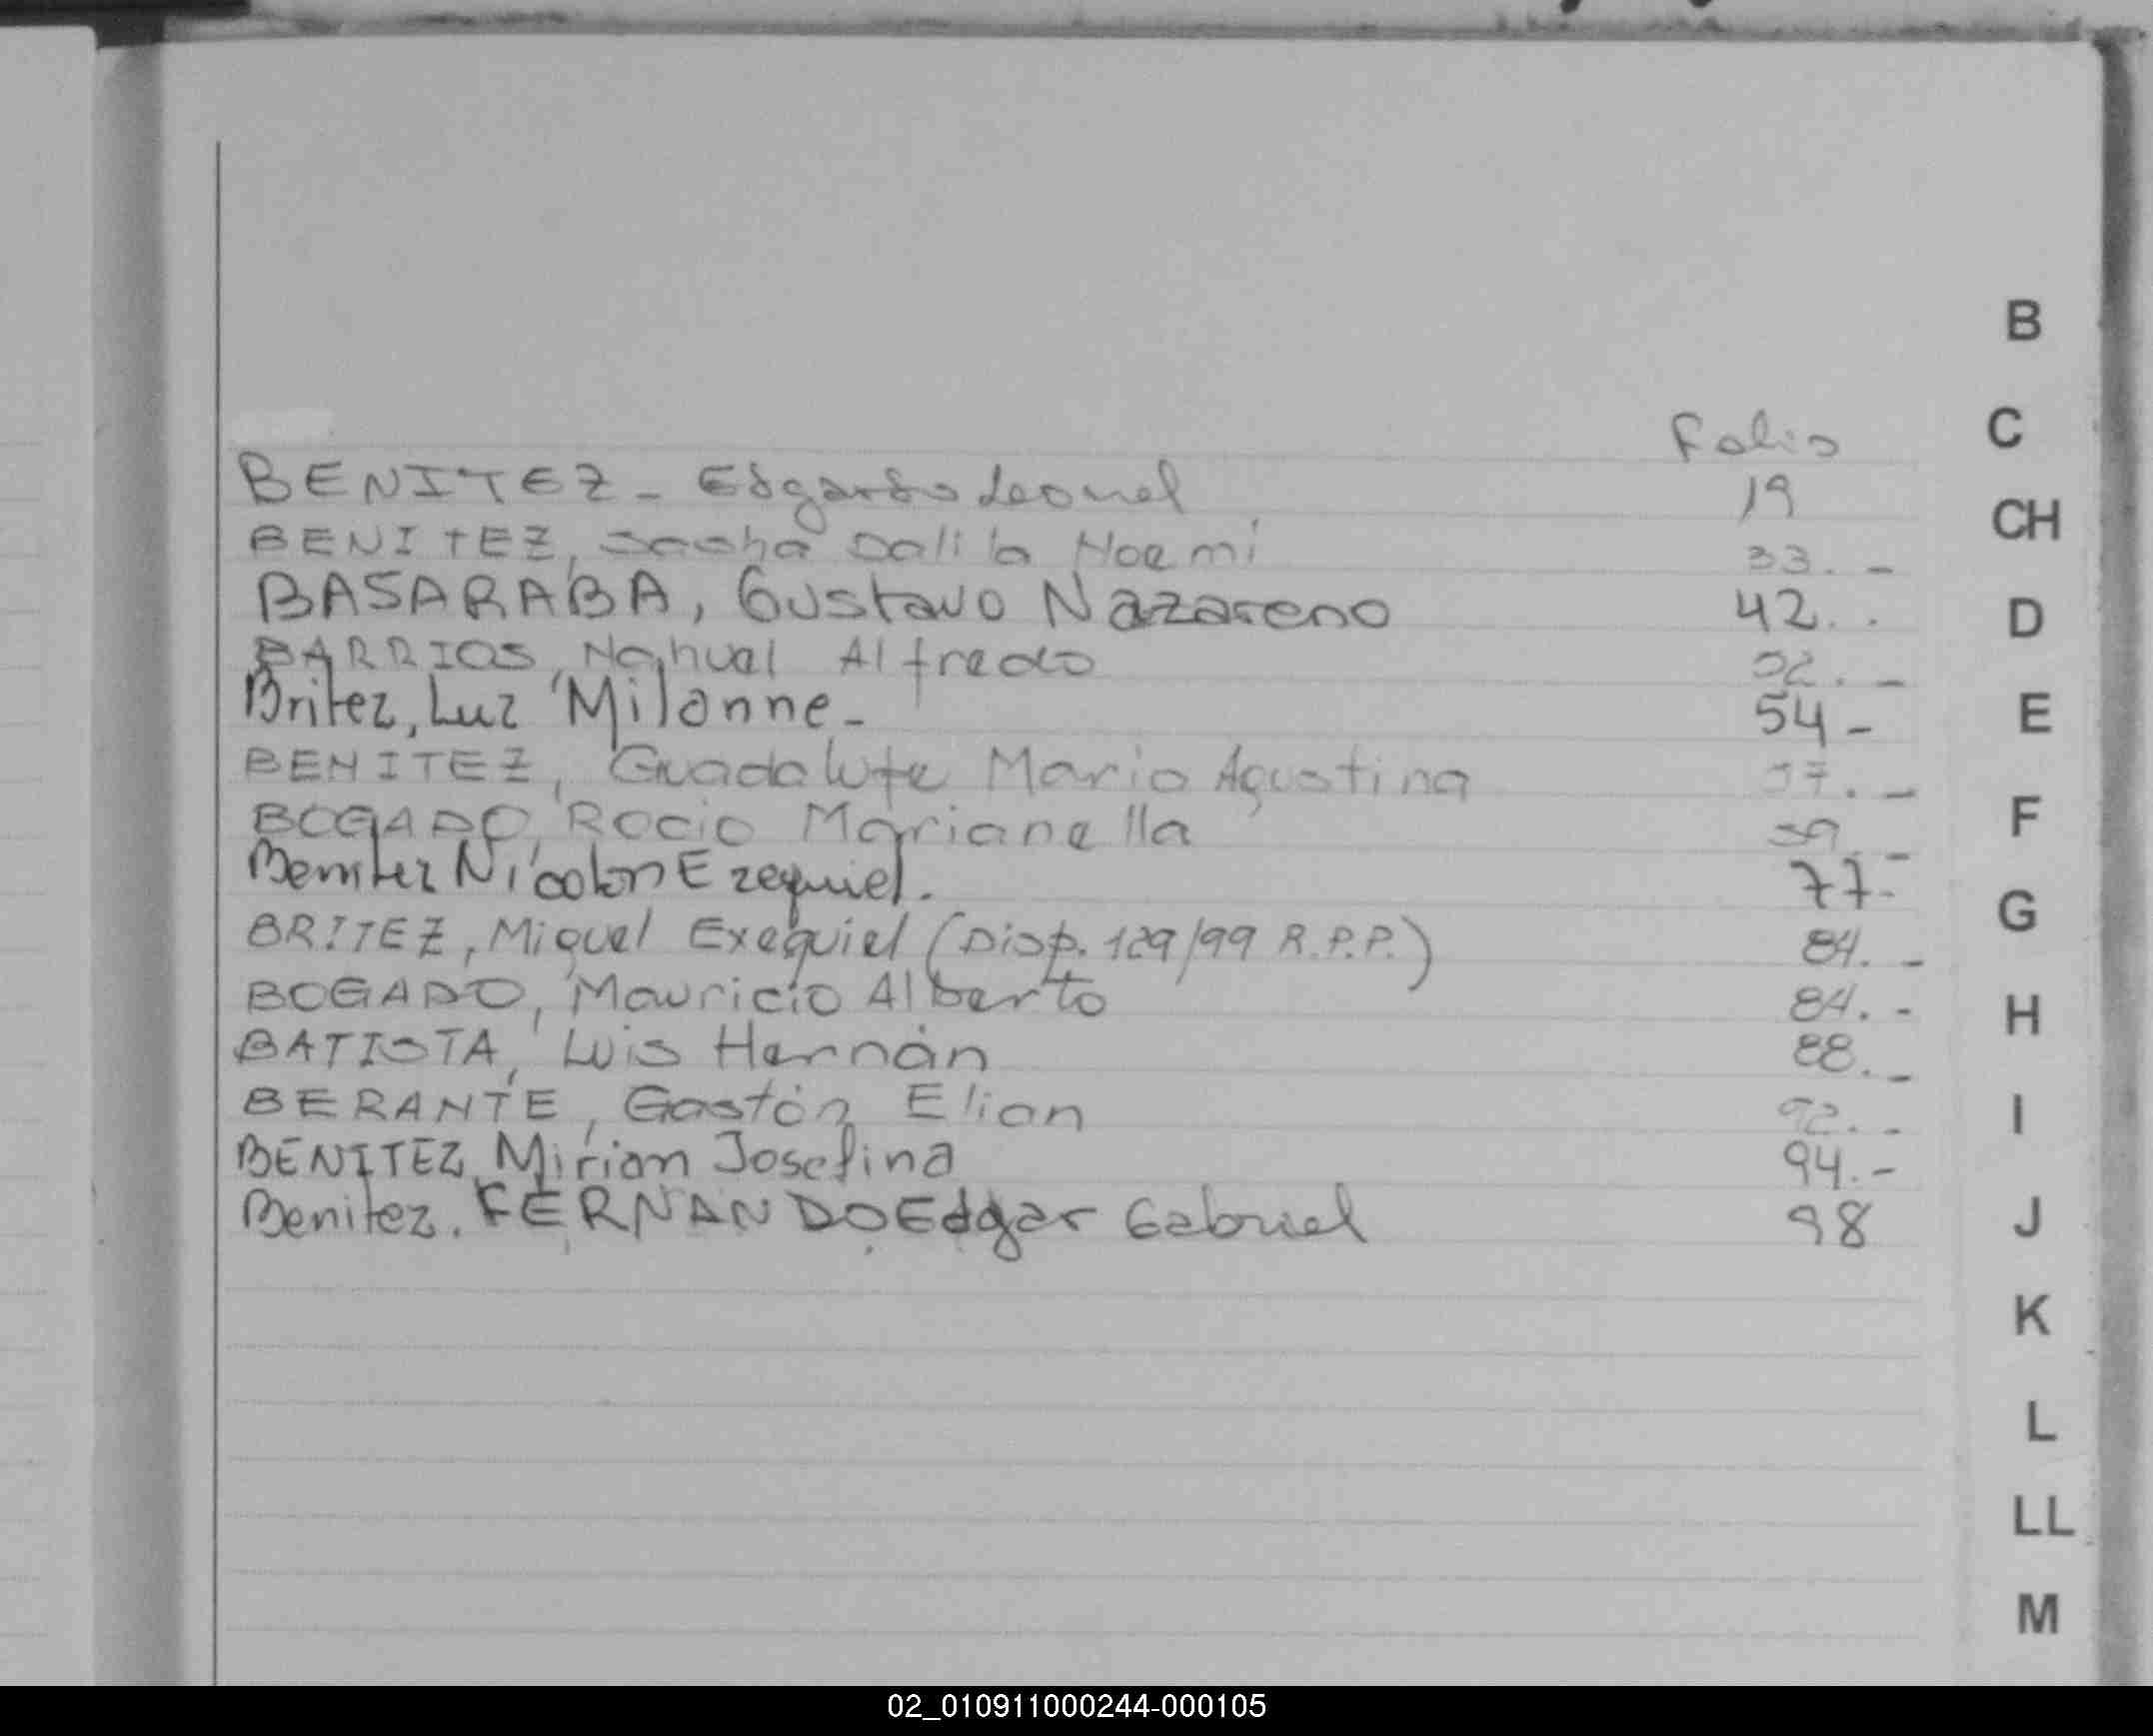 Folio
BENITEZ - Edgardo Leonel 19
BENITEZ, Sasha Dalila Noemi 33. -
BASARABA, Gustavo Nazareno 42. .
BARRIOS, Nahuel Alfredo 52. -
Britez, Luz Milanne - 54 -
BENITEZ, Guadalupe Maria Agustina 57. -
BOGADO, Rocio Marianella 59. -
Benitez Nicolas Ezequiel. 77. -
BRITEZ, Miguel Exequiel (Disp. 129/99 R.P.P.) 84. -
BOGADO, Mauricio Alberto 84. -
BATISTA, Luis Hernán 88. -
BERANTE, Gastón Elian 92. -
BENITEZ, Mirian Josefina 94. -
Benitez. FERNANDO Edgar Gabriel 98
B
C
CH
D
E
F
G
H
I
J
K
L
LL
M
02_010911000244-000105